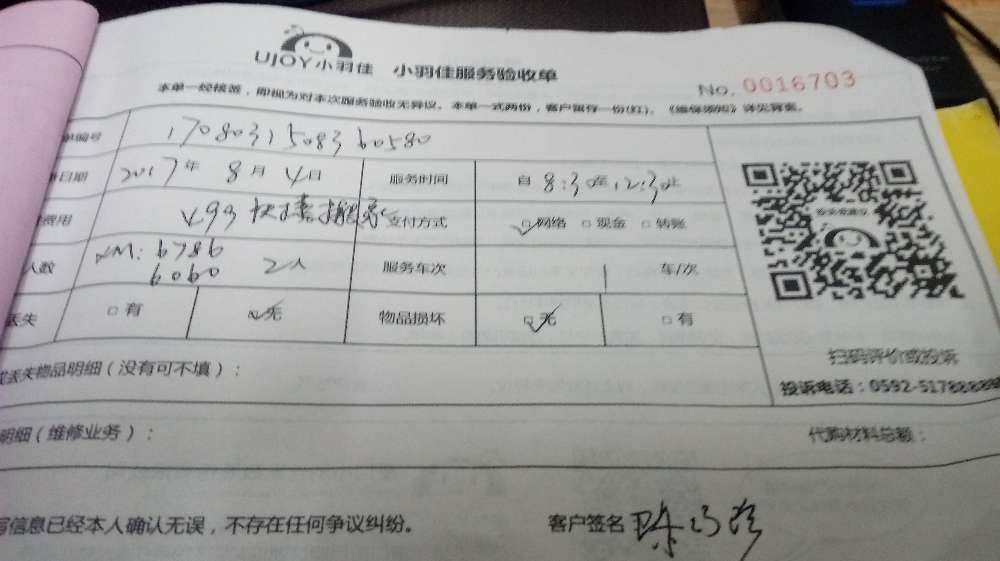 UJOY小羽佳 小羽佳服务验收单
No. 0016703
本单一经核签，即视为对本次服务验收无异议。本单一式两份，客户留存一份(红)。《维保须知》详见背页。
单编号 1708031508360580
日期 2017年 8月 4日 服务时间 自 8:30至 12:30止
费用 支付方式 ☑网络 □现金 □转账
人数 XM: 6786 6060 2人 服务车次 1 车/次
丢失 □有 ☑无 物品损坏 ☑无 □有
扫码评价或投诉
或丢失物品明细（没有可不填）：
投诉电话：0592-5178888
明细（维修业务）： 代购材料总额：
写信息已经本人确认无误，不存在任何争议纠纷。 客户签名